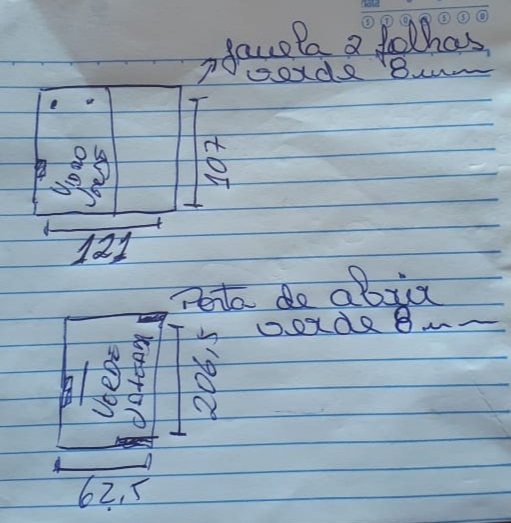 Janela 2 folhas
verde 8mm
VIDRO
107
121
Porta de abrir
verde 8mm
VERDE
JATEADA
206,5
62,5